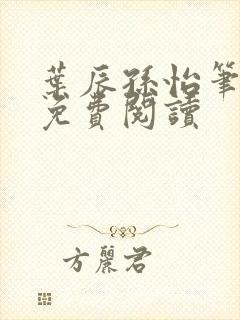 葉辰孫怡筆
免費閱讀
方麗君